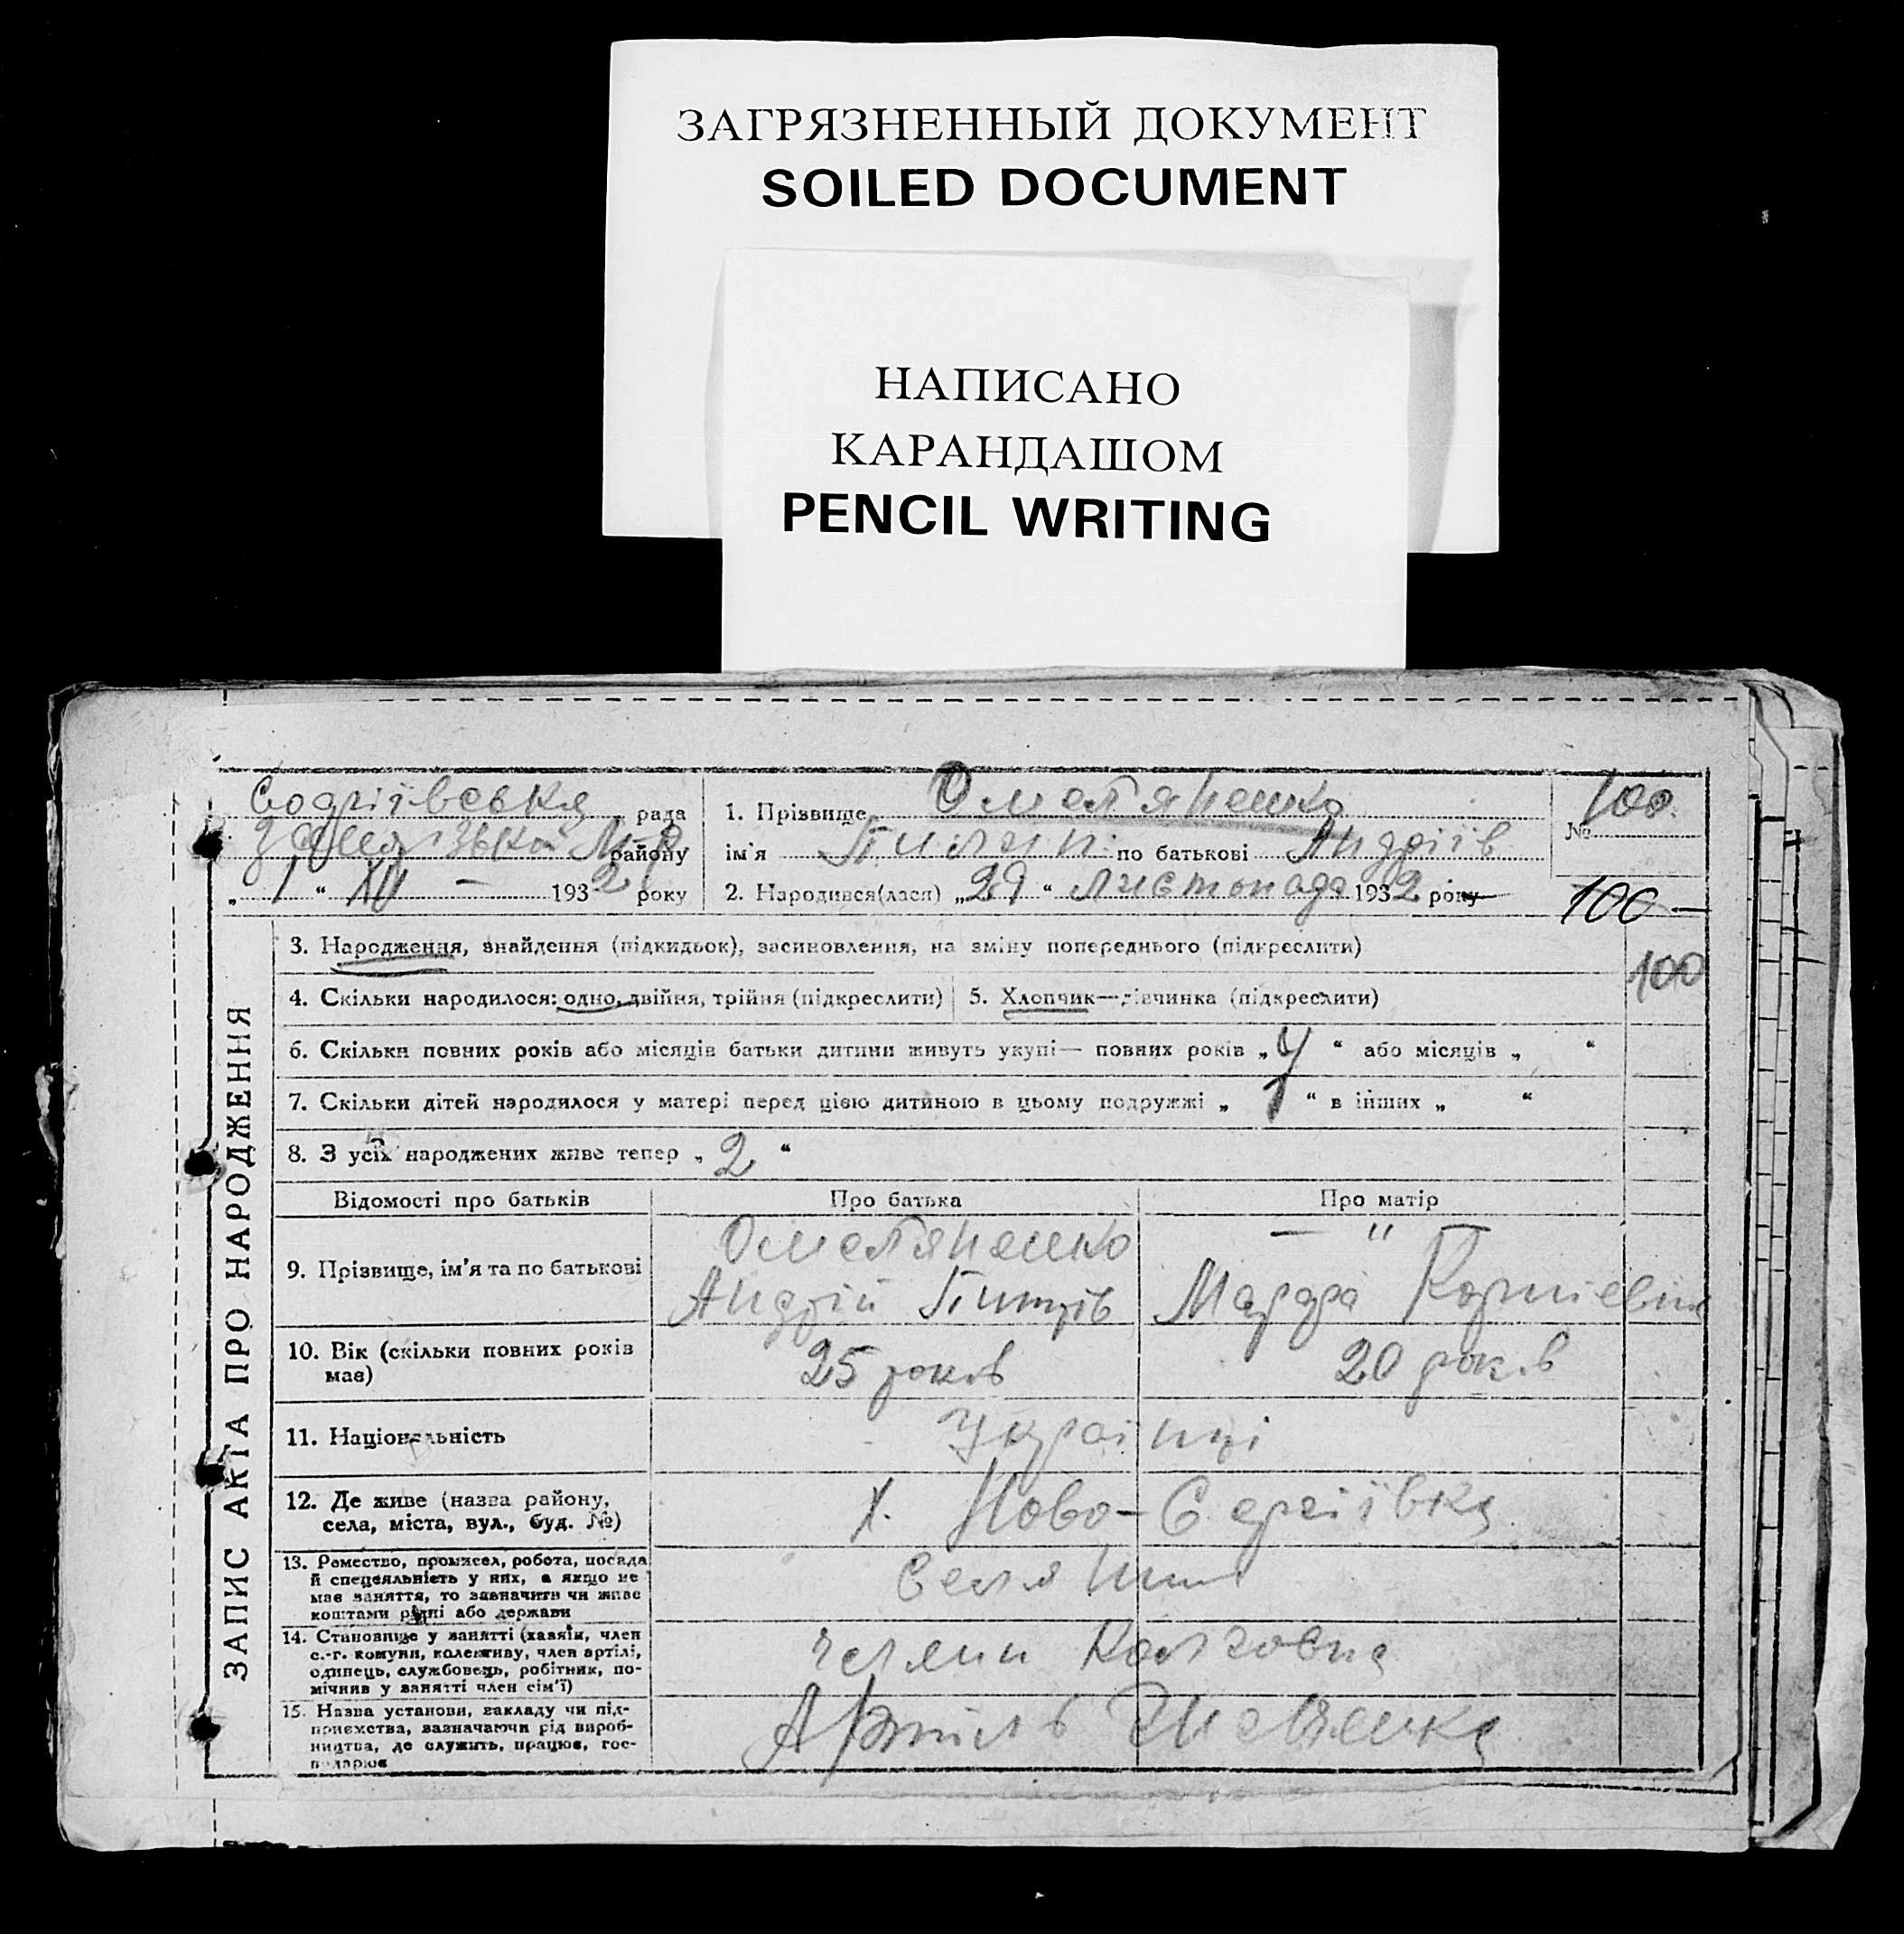 ЗАГРЯЗНЕННЫЙ ДОКУМЕНТ
SOILED DOCUMENT
НАПИСАНО
КАРАНДАШОМ
PENCIL WRITING
ЗАПИС АКТА ПРО НАРОДЖЕННЯ
рада
району
„ 1 “ XII – 1932 року
1. Прізвище Омеляненко
ім'я по батькові Андріїв
2. Народився(лася) „29“ листопада 1932 року
№ 100
100 —
100
3. Народження, знайдення (підкидьок), засиновлення, на зміну попереднього (підкреслити)
4. Скільки народилося: одно, двійня, трійня (підкреслити) 5. Хлопчик—дівчинка (підкреслити)
6. Скільки повних років або місяців батьки дитини живуть укупі— повних років „ “ або місяців „ “
7. Скільки дітей народилося у матері перед цією дитиною в цьому подружжі „ 1 “ в інших „ “
8. З усіх народжених живе тепер „ 2 “
Відомості про батьків Про батька Про матір
9. Прізвище, ім'я та по батькові Омеляненко — “ —
Андрій
10. Вік (скільки повних років має) 25 років 20 років
11. Національність Українці
12. Де живе (назва району, села, міста, вул., буд. №) х. Ново-Сергіївка
13. Ремество, промисел, робота, посада
й спеціяльність у них, а якщо не
має заняття, то зазначити чи живе
коштами рідні або держави
14. Становище у занятті (хазяїн, член
с.-г. комуни, колективу, член артілі,
одинець, службовець, робітник, по-
мічник у занятті член сім'ї)
члени
15. Назва установи, закладу чи під-
приємства, зазначаючи рід вироб-
ництва, де служить, працює, гос-
подарює
Артіль Шевченка